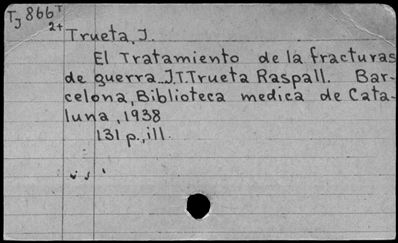 TJ 866 T
2+
Trueta, J.
El Tratamiento de la fracturas
de guerra...J.T.Trueta Raspall. Bar-
celona, Biblioteca medica de Cata-
luna, 1938
131 p., ill.